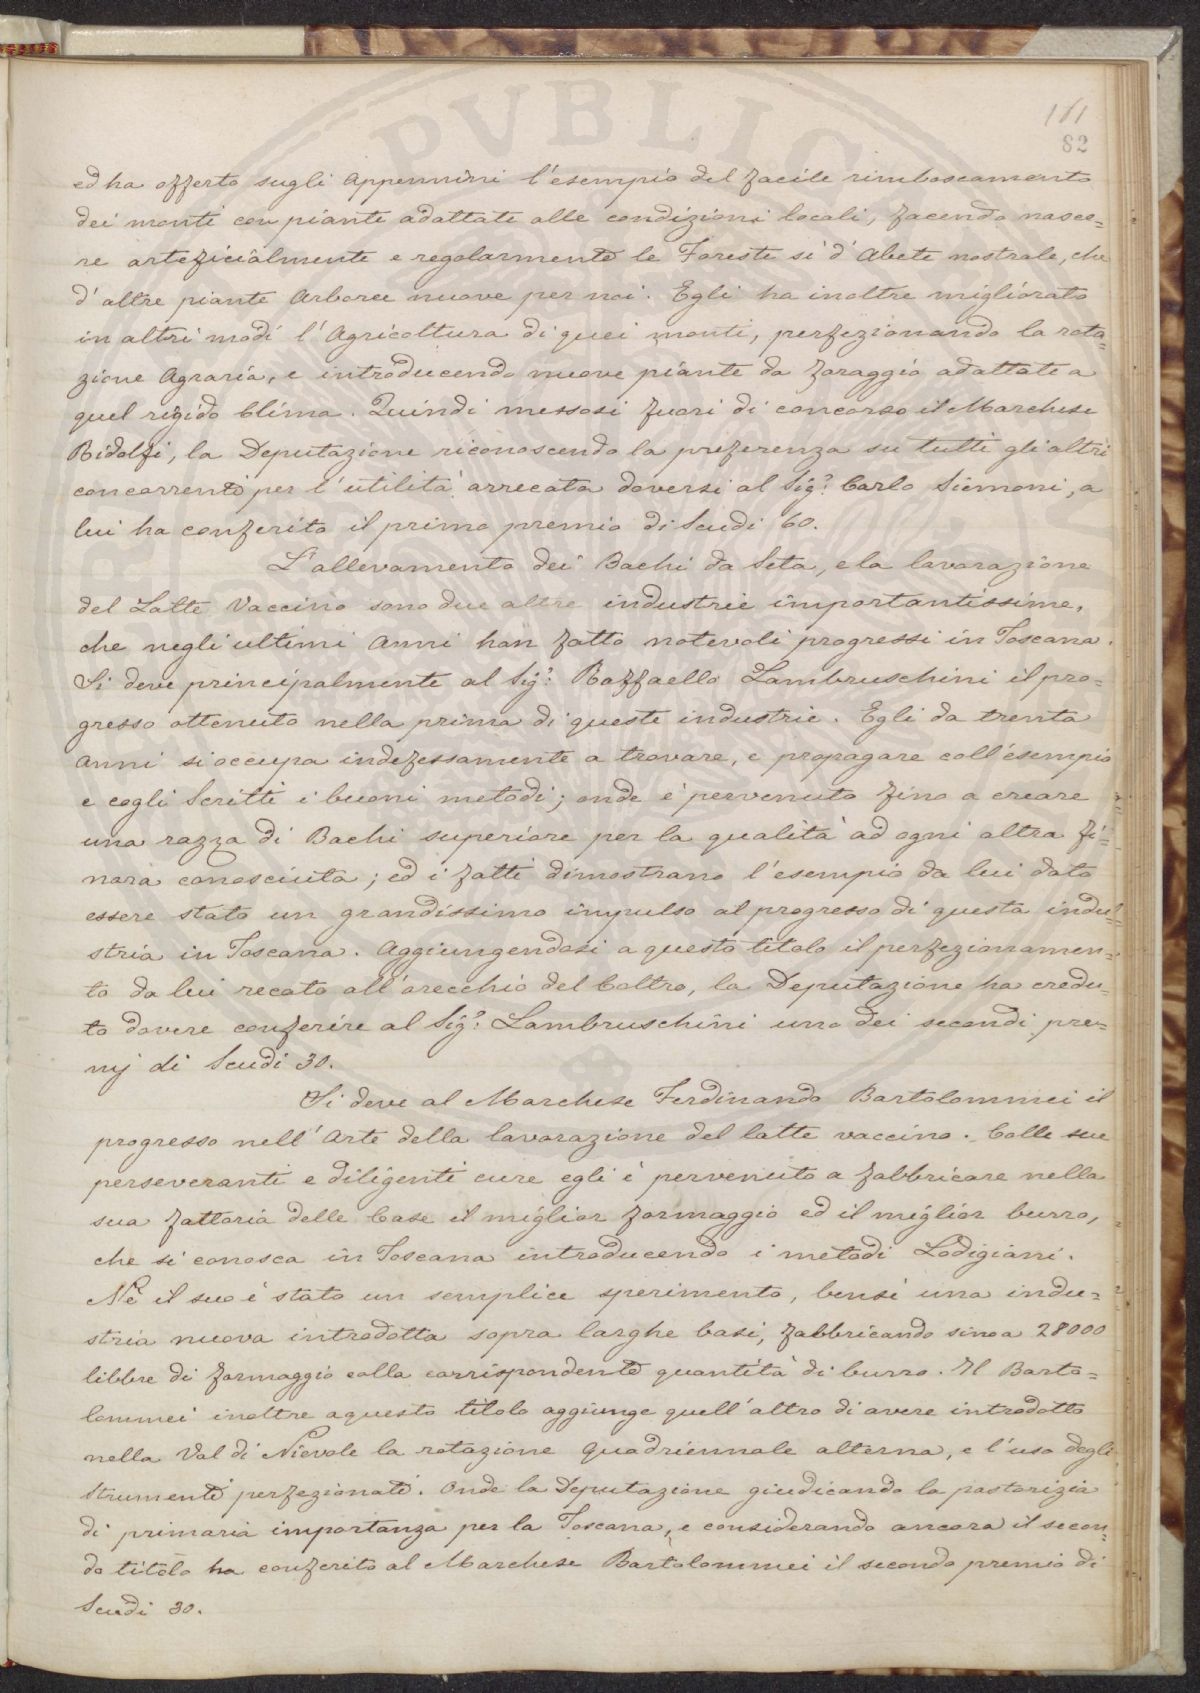 PVBLIC
161
82
ed ha offerto sugli Appennini l'esempio del facile rimboscamento
dei monti con piante adattate alle condizioni locali, facendo nasce=
re arteficialmente e regolarmente le Foreste sì d'Abete nostrale, che
d'altre piante Arboree nuove per noi. Egli ha inoltre migliorato
in altri modi l'Agricoltura di quei monti, perfezionando la rota=
zione Agraria, e introducendo nuove piante da foraggio adattate a
quel rigido Clima. Quindi messosi fuori di concorso il Marchese
Ridolfi, la Deputazione riconoscendo la preferenza su tutti gli altri
concorrenti per l'utilità arrecata doversi al Sigr. Carlo Siemoni, a
lui ha conferito il primo premio di Scudi 60.
L'allevamento dei Bachi da Seta, e la lavorazione
del Latte Vaccino sono due altre industrie importantissime,
che negli ultimi Anni han fatto notevoli progressi in Toscana.
Si deve principalmente al Sigr. Raffaello Lambruschini il pro=
gresso ottenuto nella prima di queste industrie. Egli da trenta
anni si occupa indefessamente a trovare, e propagare coll'esempio
e cogli Scritti i buoni metodi; onde è pervenuto fino a creare
una razza di Bachi superiore per la qualità ad ogni altra fi=
nora conosciuta; ed i fatti dimostrano l'esempio da lui dato
essere stato un grandissimo impulso al progresso di questa indu=
stria in Toscana. Aggiungendosi a questo titolo il perfezionamen=
to da lui recato all'orecchio del Coltro, la Deputazione ha credu=
to dovere conferire al Sigr. Lambruschini uno dei secondi pre=
mj di Scudi 30.
Si deve al Marchese Ferdinando Bartolommei il
progresso nell'Arte della lavorazione del latte vaccino. Colle sue
perseveranti e diligenti cure egli è pervenuto a fabbricare nella
sua fattoria delle Case il miglior formaggio ed il miglior burro,
che si conosca in Toscana introducendo i metodi Lodigiani.
Nè il suo è stato un semplice sperimento, bensì una indu=
stria nuova introdotta sopra larghe basi, fabbricando sino a 28000
libbre di formaggio colla corrispondente quantità di burro. Il Barto=
lommei inoltre a questo titolo aggiunge quell'altro di avere introdotto
nella Val di Nievole la rotazione quadriennale alterna, e l'uso degli
Strumenti perfezionati. Onde la Deputazione giudicando la pastorizia
di primaria importanza per la Toscana, e considerando ancora il secon=
do titolo ha conferito al Marchese Bartolommei il secondo premio di
Scudi 30.